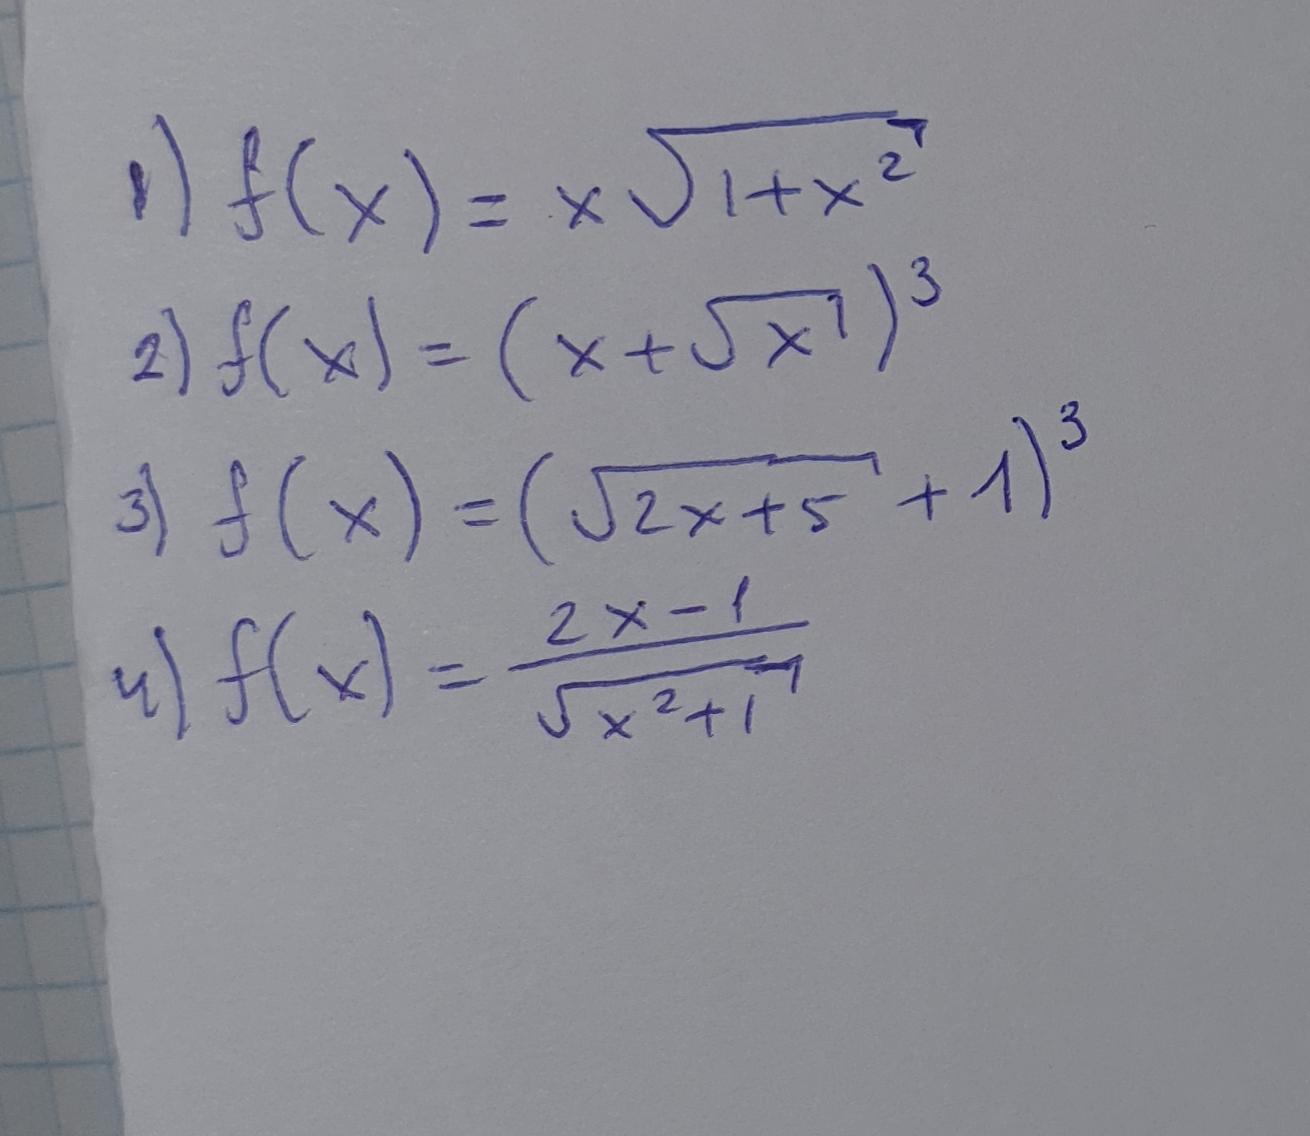 1) f(x) = x√(1+x²)
2) f(x) = (x+√x)³
3) f(x) = (√(2x+5) + 1)³
4) f(x) = (2x-1)/√(x²+1)